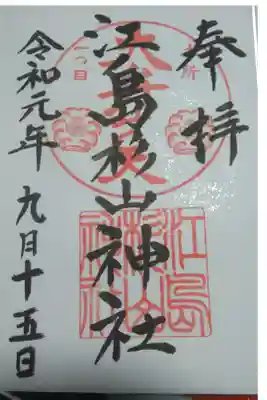 奉拝
江島杉山神社
令和元年 九月十五日
一つ目
江島杉山神社